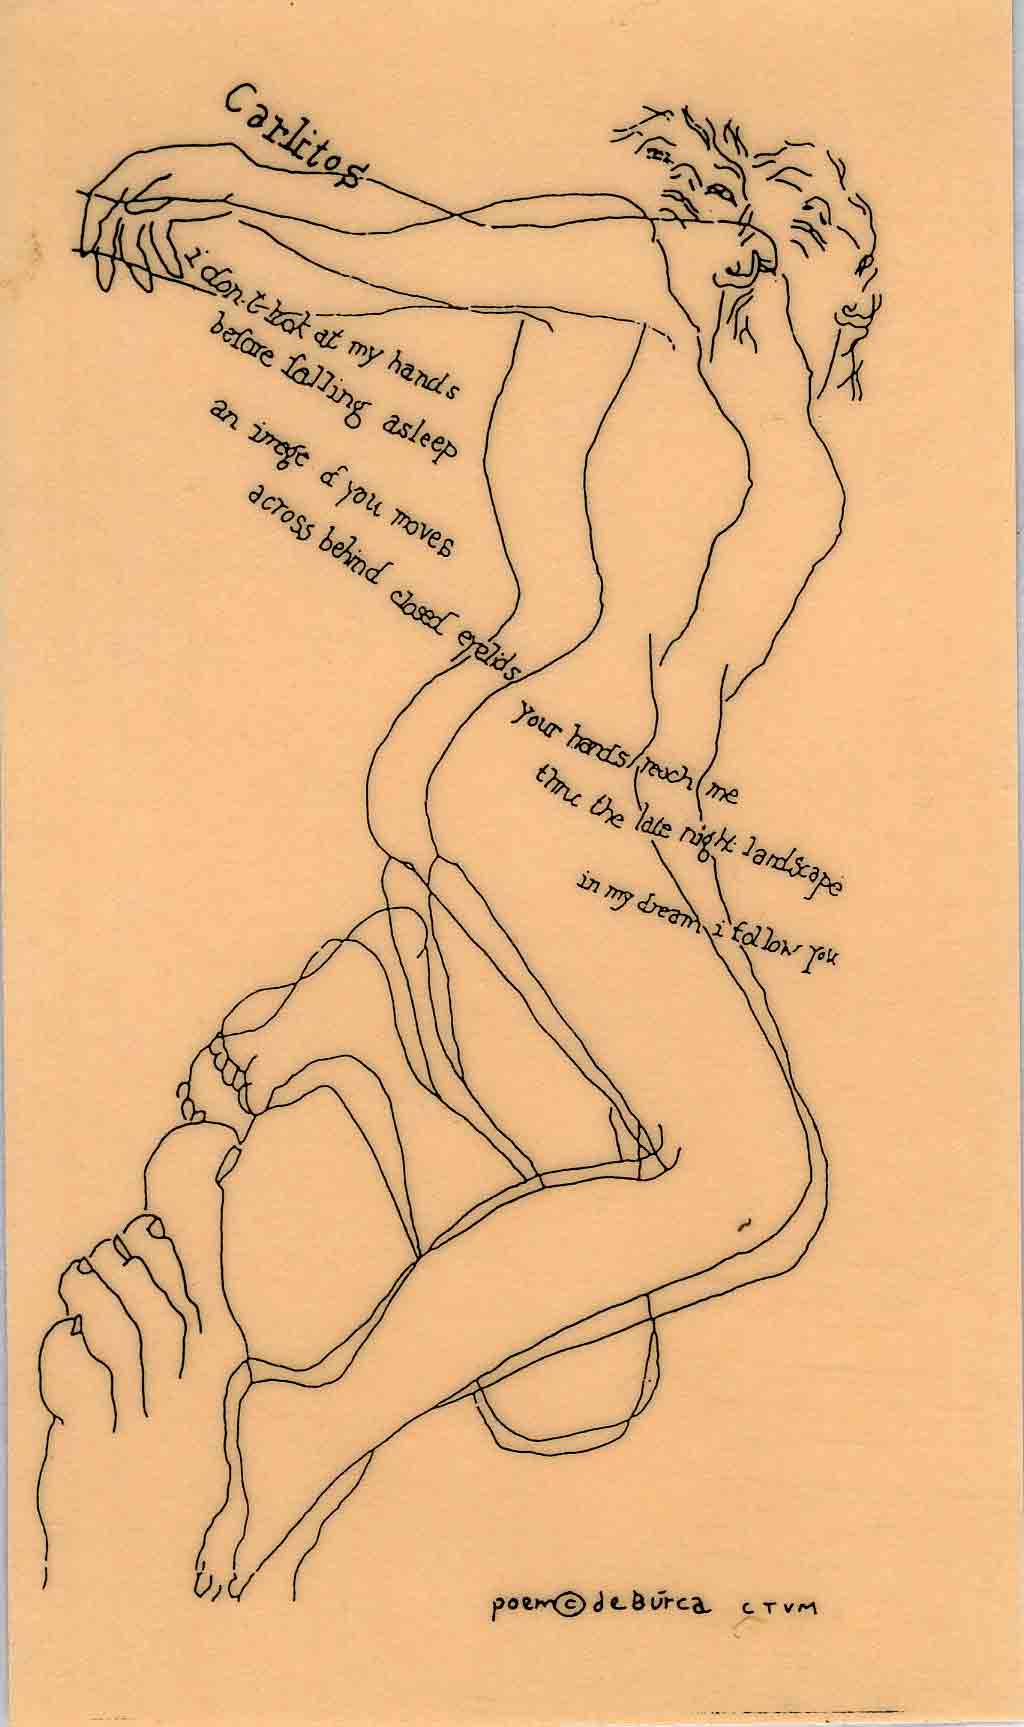 Carlitos
i don't look at my hands
before falling asleep
an image of you moves
across behind closed eyelids
your hands reach me
thru the late night landscape
in my dream i follow you
poem © de Búrca CTVM